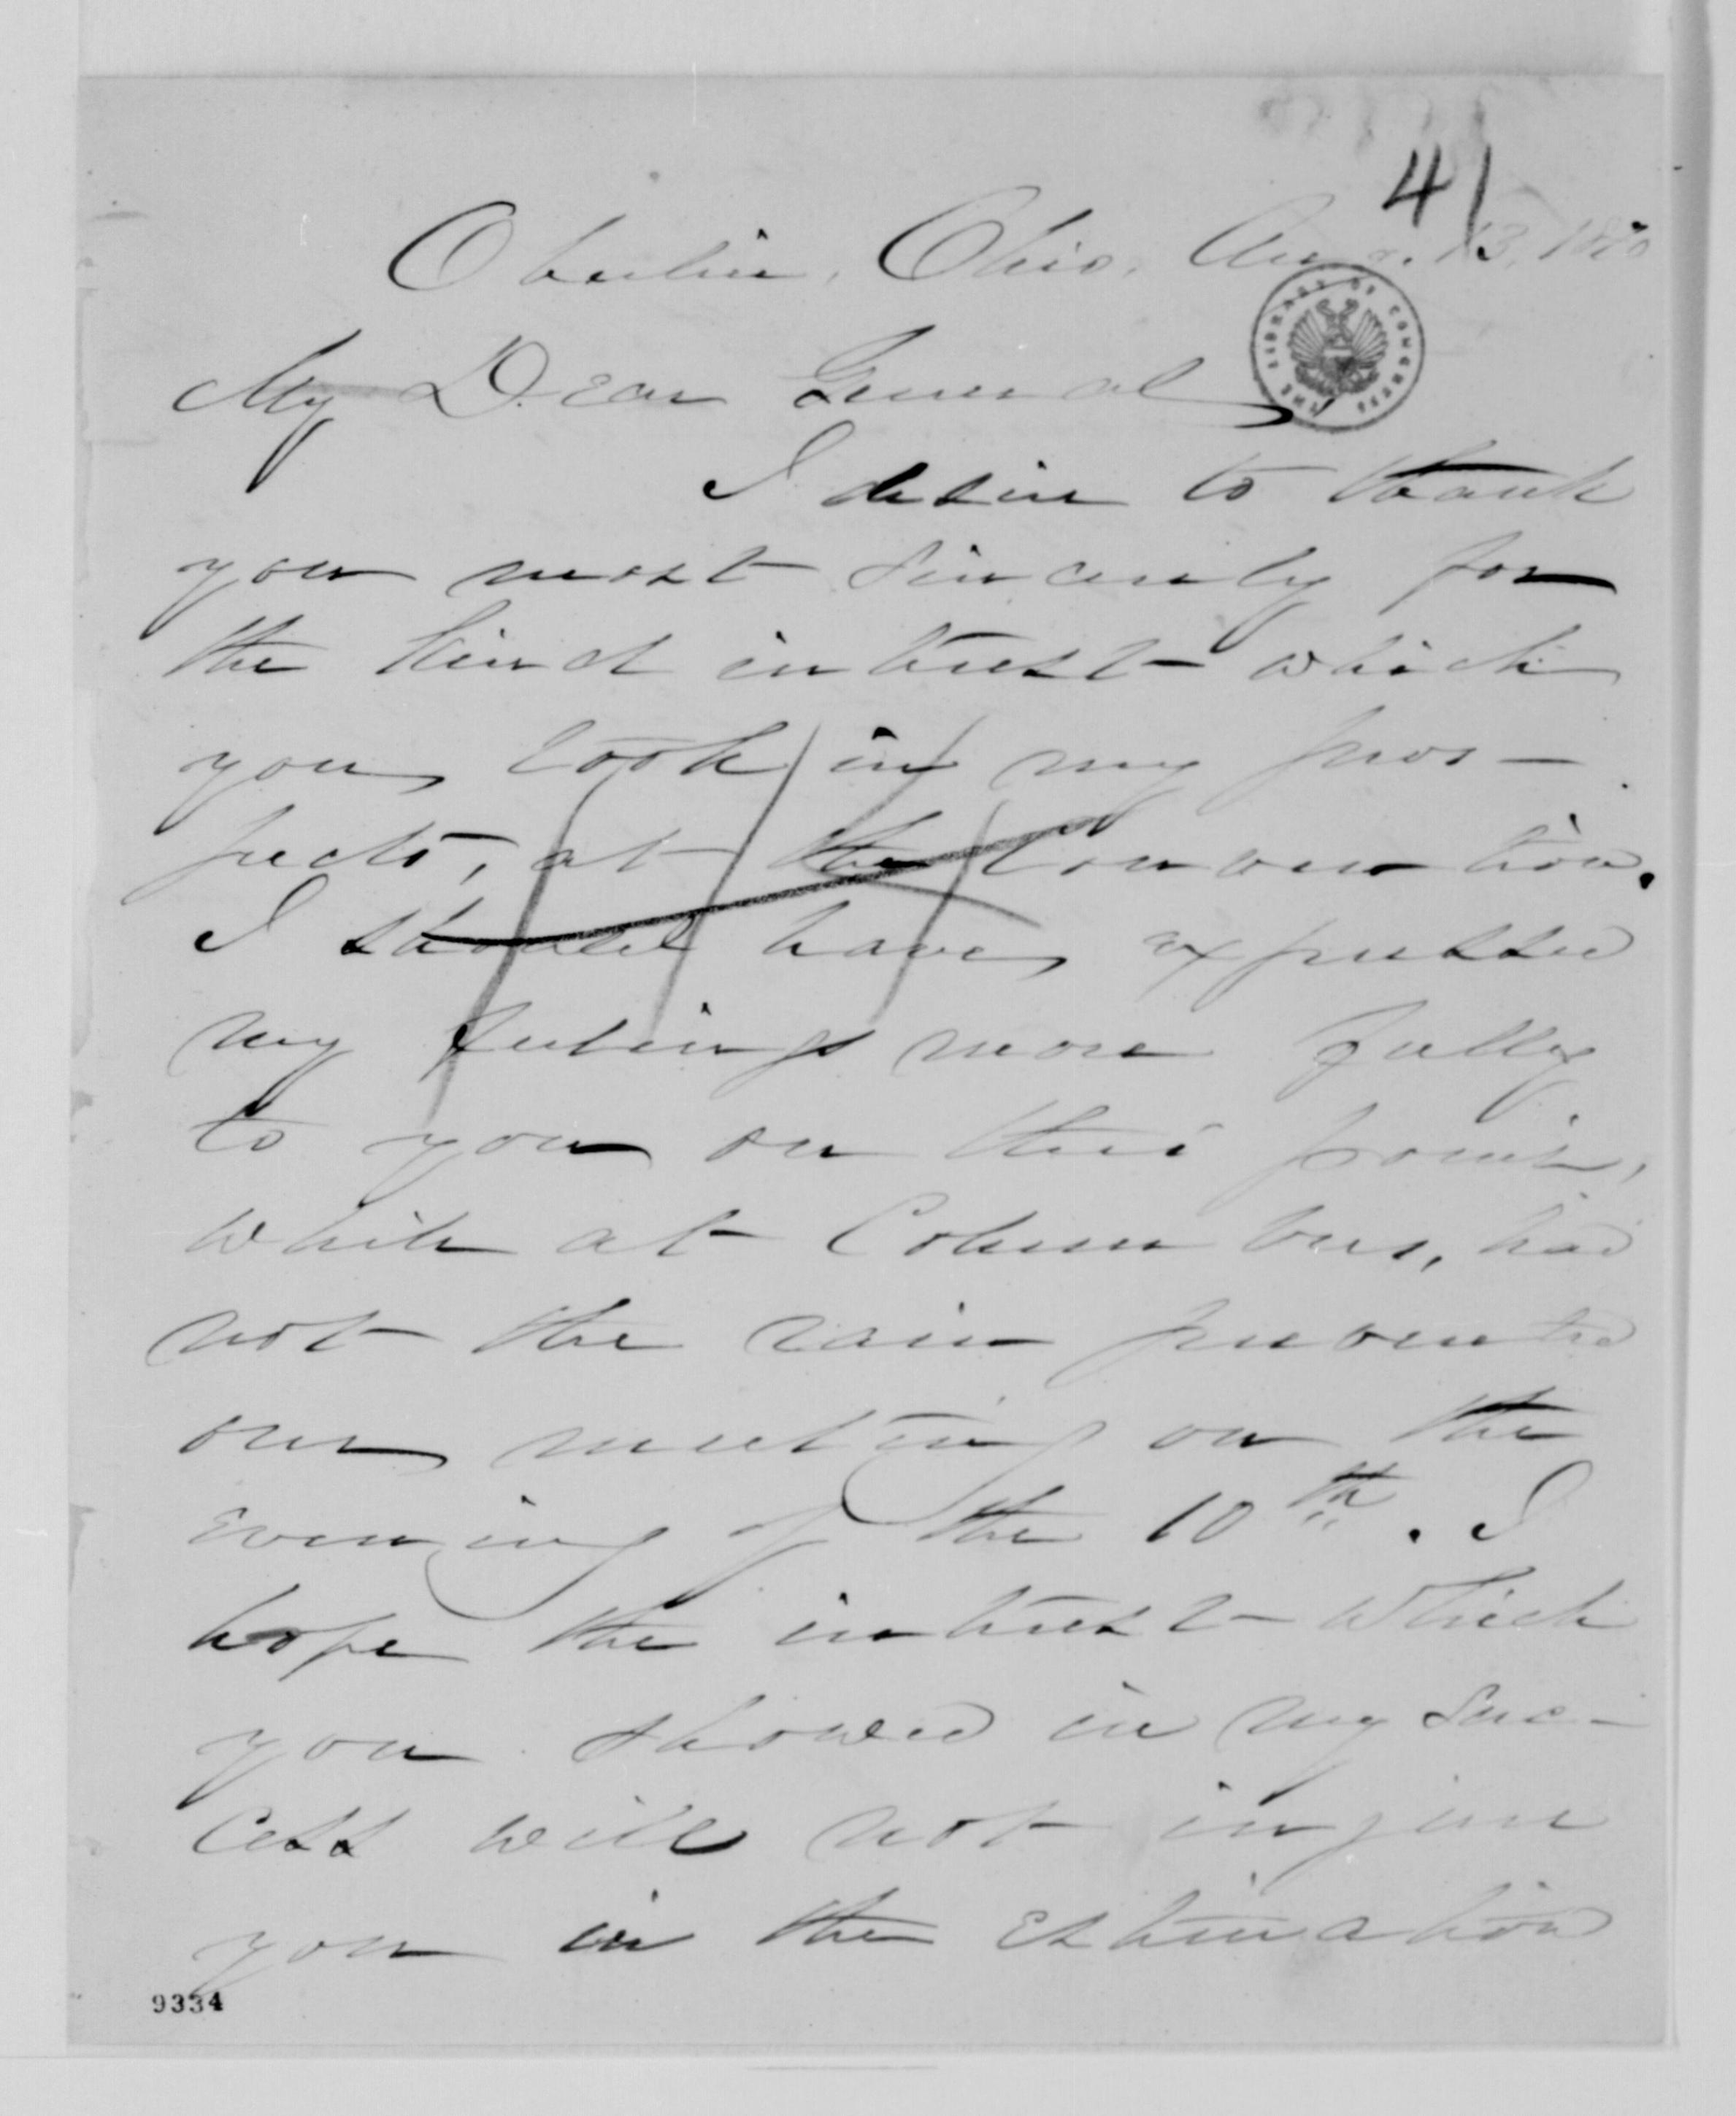 41
Oberlin, Ohio, Aug. 13, 1870
THE LIBRARY OF CONGRESS
My Dear General,
I desire to thank
you most sincerely for
the kind interest which
you took in my pros-
pects, at the Convention.
I should have expressed
my feelings more fully
to you on this point,
while at Columbus, had
not the rain prevented
our meeting on the
evening of the 10th. I
hope the interest which
you showed in my suc-
cess will not injure
you in the estimation
9334